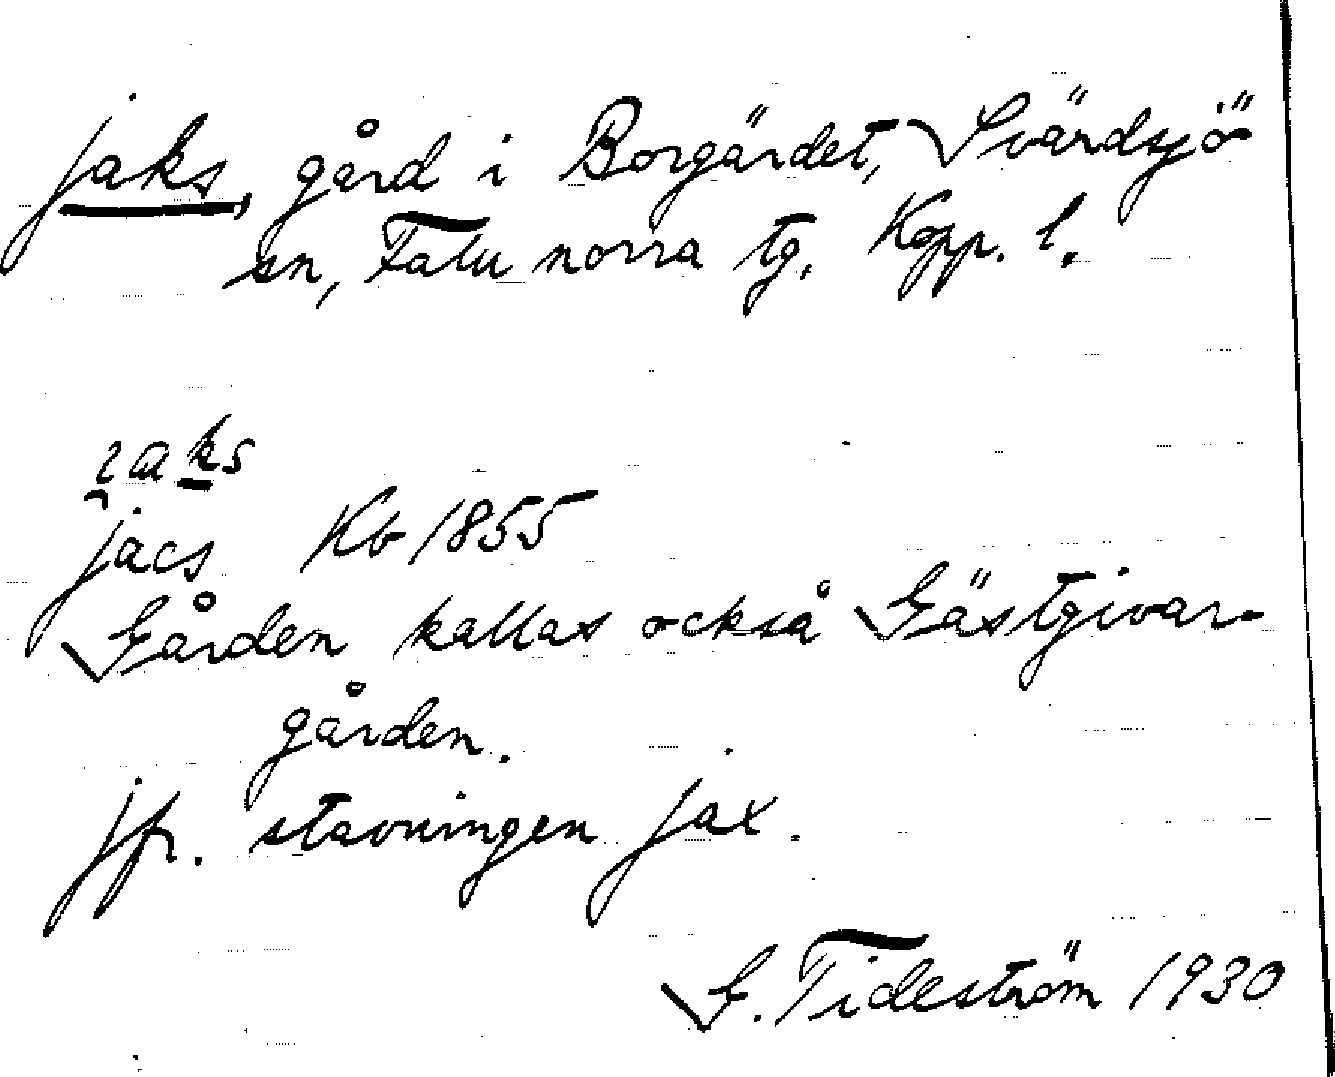 jaks, gård i Borgärdet, Svärdsjö
sn, Falu norra tg. Kopp. l.
i̯aks
jacs Kb 1855
Gården kallas också Gästgivar-
gården.
jfr. stavningen jax.
G. Tideström 1930